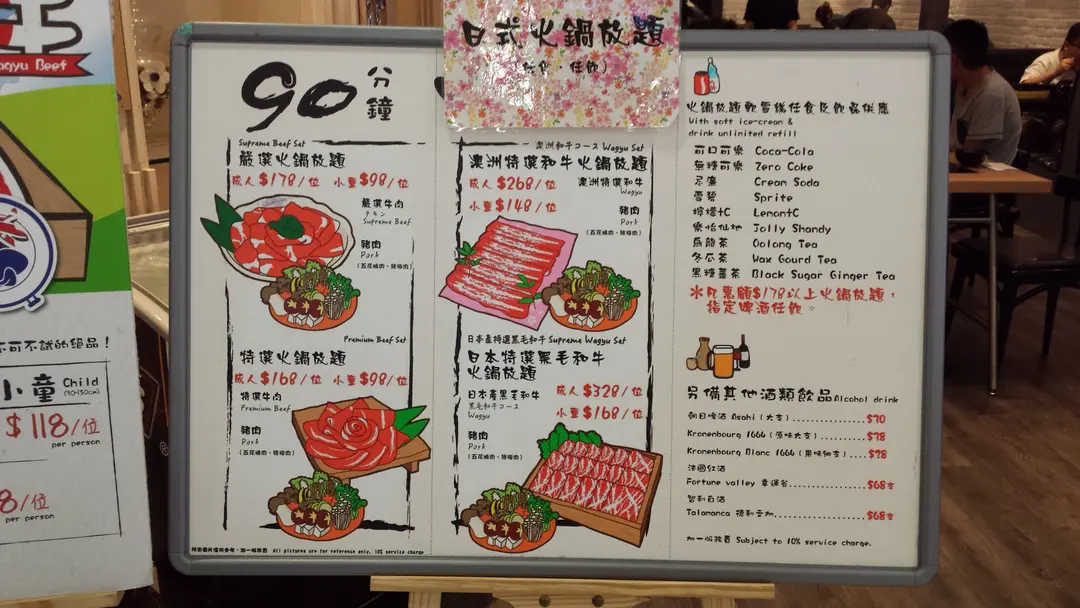 agyu Beef
不可不試的絕品！
小童 Child
(90-130cm)
$118/位
per person
8/位
per person
日式火鍋放題
(任食·任飲)
90分鐘
Supreme Beef Set
嚴選火鍋放題
成人 $178/位 小童 $98/位
嚴選牛肉
Supreme Beef
豬肉
Pork
Premium Beef Set
特選火鍋放題
成人 $168/位 小童 $98/位
特選牛肉
Premium Beef
豬肉
Pork
All pictures are for reference only. 10% service charge
澳洲和牛コース Wagyu Set
澳洲特選和牛火鍋放題
成人 $268/位
小童 $148/位
澳洲特選和牛
Wagyu
豬肉
Pork
日本產特選黑毛和牛 Supreme Wagyu Set
日本特選黑毛和牛
火鍋放題
成人 $328/位
小童 $168/位
日本產黑毛和牛
黑毛和牛コース
Wagyu
豬肉
Pork
火鍋放題軟雪糕任食及飲品供應
With soft ice-cream &
drink unlimited refill
可口可樂 Coca-Cola
無糖可樂 Zero Coke
忌廉 Cream Soda
雪碧 Sprite
檸檬+C Lemon+C
樂怡仙地 Jolly Shandy
烏龍茶 Oolong Tea
冬瓜茶 Wax Gourd Tea
黑糖薑茶 Black Sugar Ginger Tea
※凡惠顧$178以上火鍋放題，
指定啤酒任飲。
另備其他酒類飲品 Alcohol drink
朝日啤酒 Asahi (大支) ................ $30
Kronenbourg 1664 (原味大支) ........... $28
Kronenbourg Blanc 1664 (果味細支) .... $28
法國紅酒
Fortune valley 幸運谷 ................ $68支
智利白酒
Talamanca 德利干加 .................... $68支
加一服務費 Subject to 10% service charge.